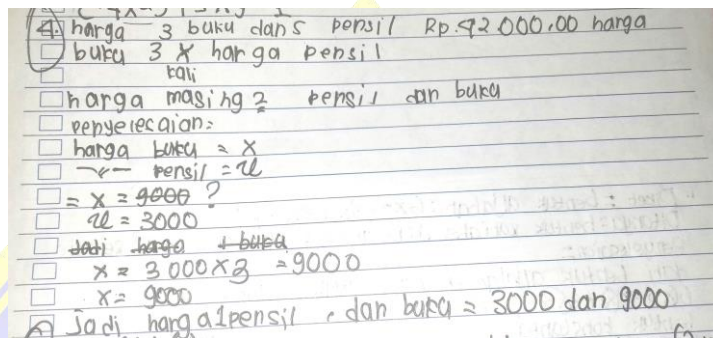 4. harga 3 buku dan 5 pensil Rp.42.000.00 harga
buku 3 x harga pensil
kali
harga masing 2 pensil dan buku
penyelesaian:
harga buku = x
pensil = u
= x = 9000 ?
u = 3000
Jadi harga 1 buku
x = 3000x3 = 9000
x = 9000
Jadi harga 1 pensil , dan buku = 3000 dan 9000